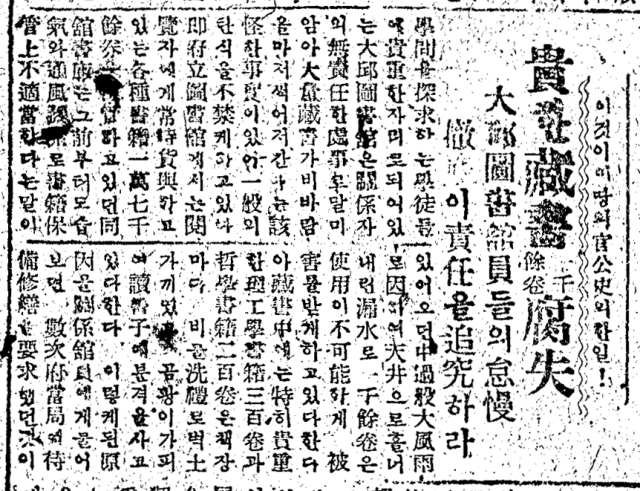 이것이 이땅의 官公吏의 한일!
貴重藏書 千餘卷 腐失
大邱圖書館員들의 怠慢
이責任을追究하라
學問을探求하는學徒들
에貴重한자미로되여있
는大邱圖書館은關係자
의無責任한處事로말미
암아大量藏書가비바람
을마저썩어저간다는該
怪한事實이있어一般의
한식을不禁케하고있다
即府立圖書館에서는閱
覽者에게常時貸與하고
있는各種書籍一萬七千
餘卷 하고있던同
館書庫는그前부터도습
氣와通風 로書籍保
管上不適當하다는말이
있어오던中過般大風雨
로因하여天井으로흘너
내련漏水로一千餘卷은
使用이不可能하게 被
害를받게하고있다한다
아藏書中에는特히貴重
한理工學書籍三百卷과
哲學書籍二百卷은책장
마다 비를洗禮로벽土
가끼었 곰팡이가피
여讀書子에분격을사고
있다한다 이렇게된原
因을關係館員에게들어
보면 數次府當局에待
備修繕을要求했던것이